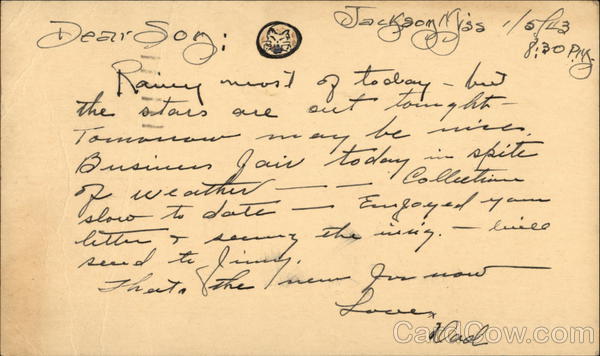 Jackson Miss 1/5/43
8:30 P.M.
Dear Son:
Rainy most of today - but
the stars are out tonight -
Tomorrow may be nice.
Business fair today in spite
of weather - - Collection
slow to date - Enjoyed your
letter & seeing the - will
send to Jimy.
Thats the news for now
Love,
Dad
CardCow.com